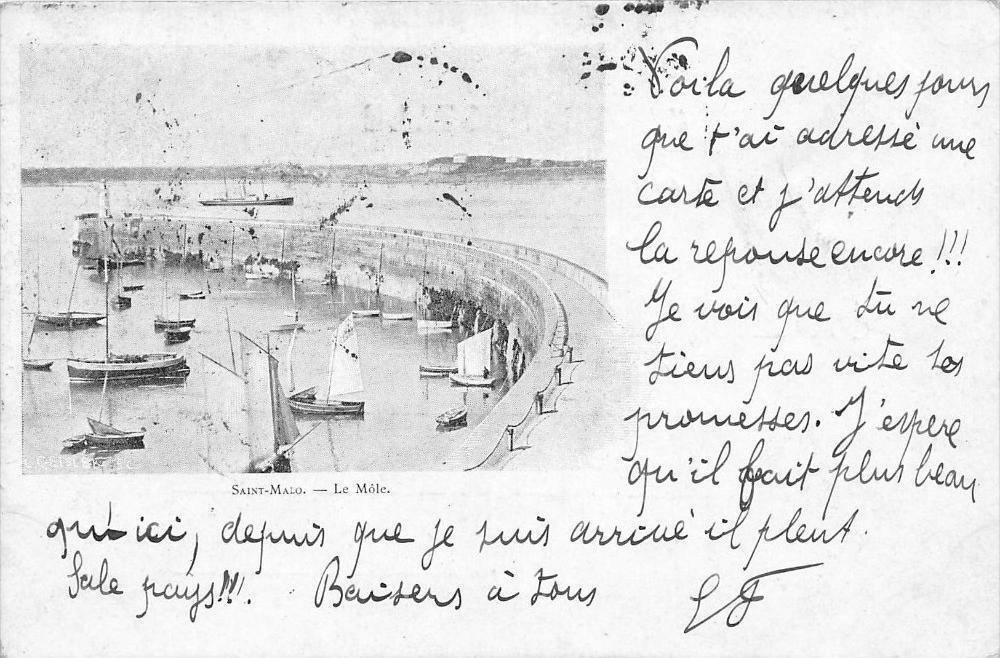 Voila quelques jours
que t'ai adressé une
carte et j'attends
la reponse encore!!!
Je vois que tu ne
tiens pas vite tes
promesses. J'espere
qu'il fait plus beau
SAINT-MALO. — LE MÔLE.
qu'ici, depuis que je suis arrivé il pleut.
Sale pays!!!. Baisers à tous